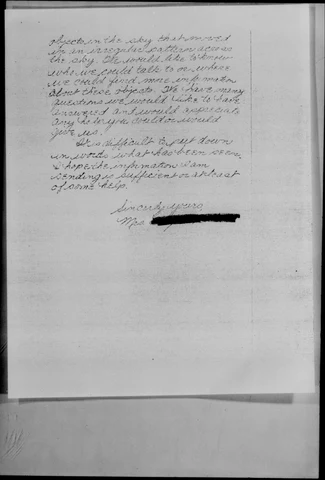 objects in the sky that moved
in an irregular pattern across
the sky. We would like to know
who we could talk to or where
we could find more information
about these objects. We have many
questions we would like to have
answered and would appreciate
any help you could or would
give us.
It is difficult to put down
in words what has been seen.
I hope the information I am
sending is sufficient or at least
of some help.
Sincerely yours,
Mrs.